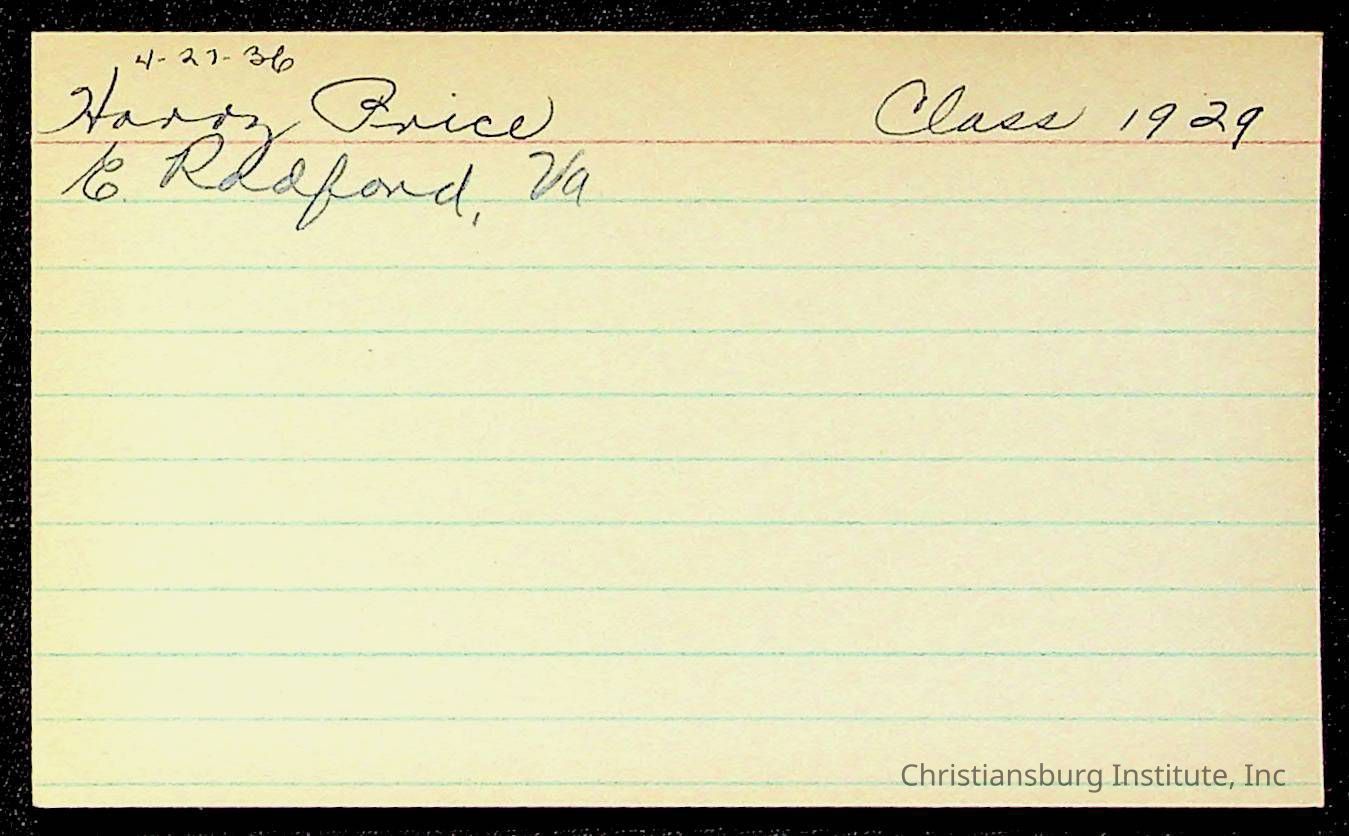 4-27-36
Harry Price Class 1929
E. Radford, Va
Christiansburg Institute, Inc